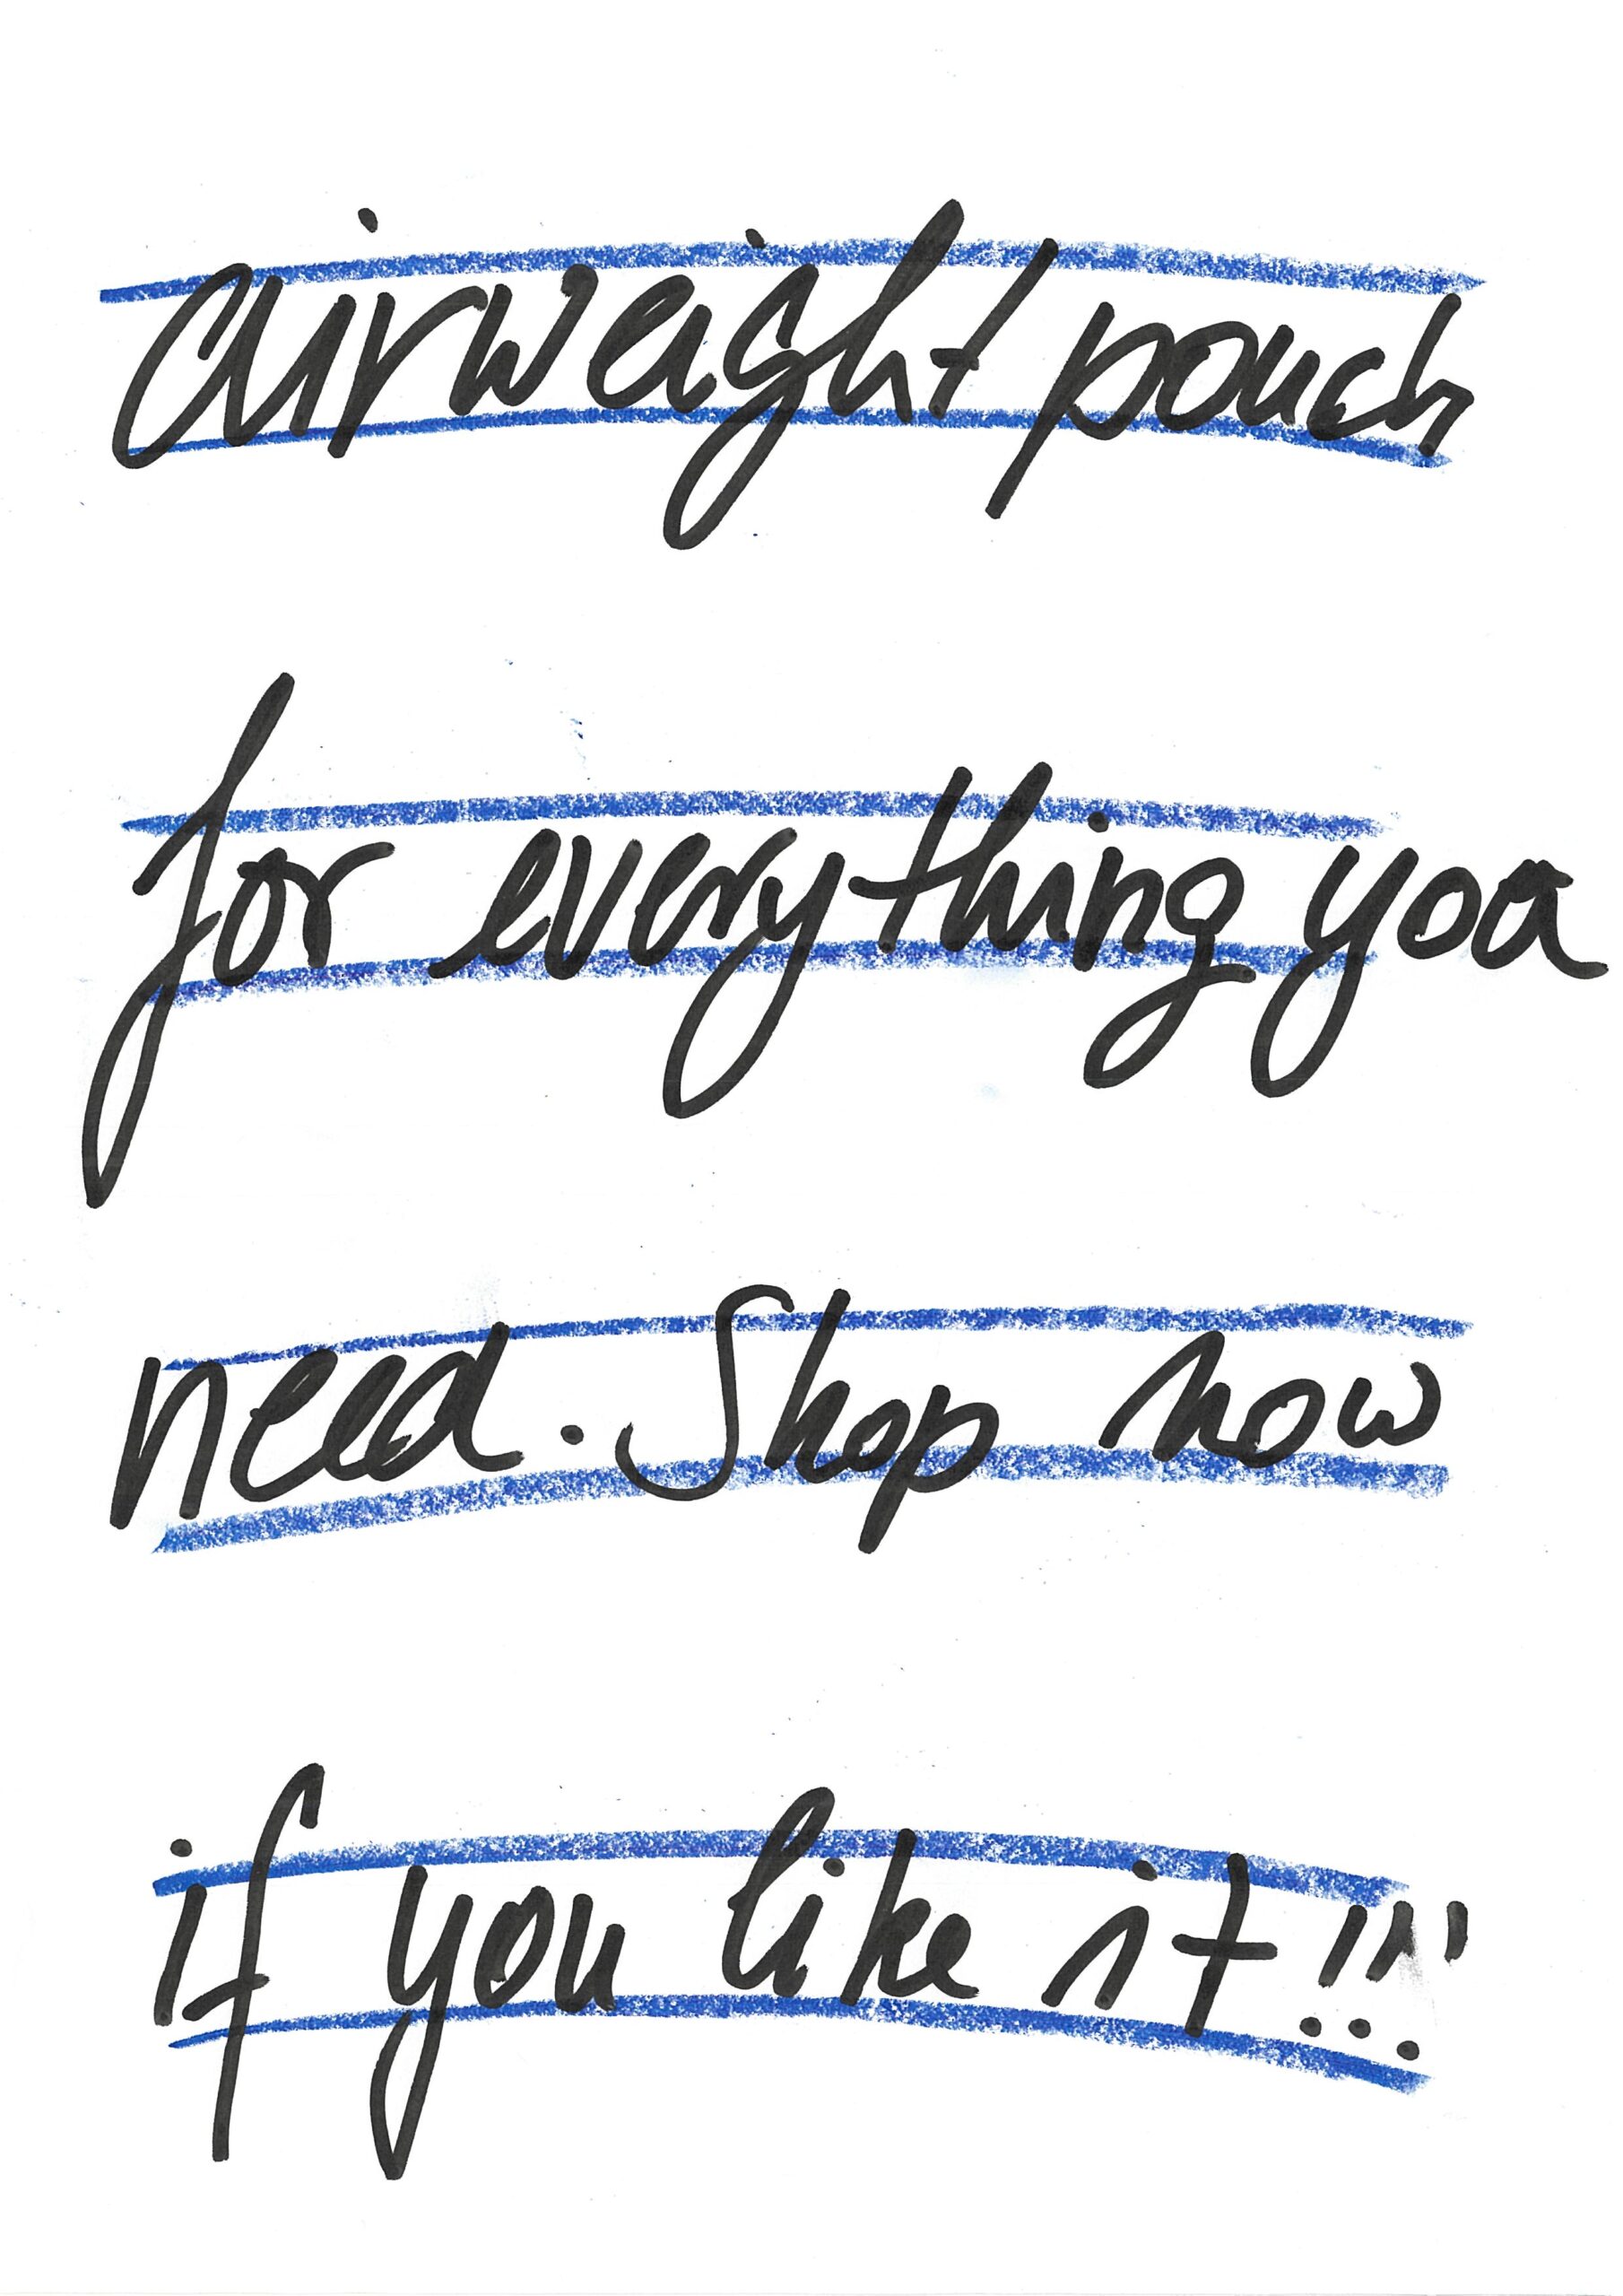 airweight pouch
for everything you
need. Shop now
if you like it!!!